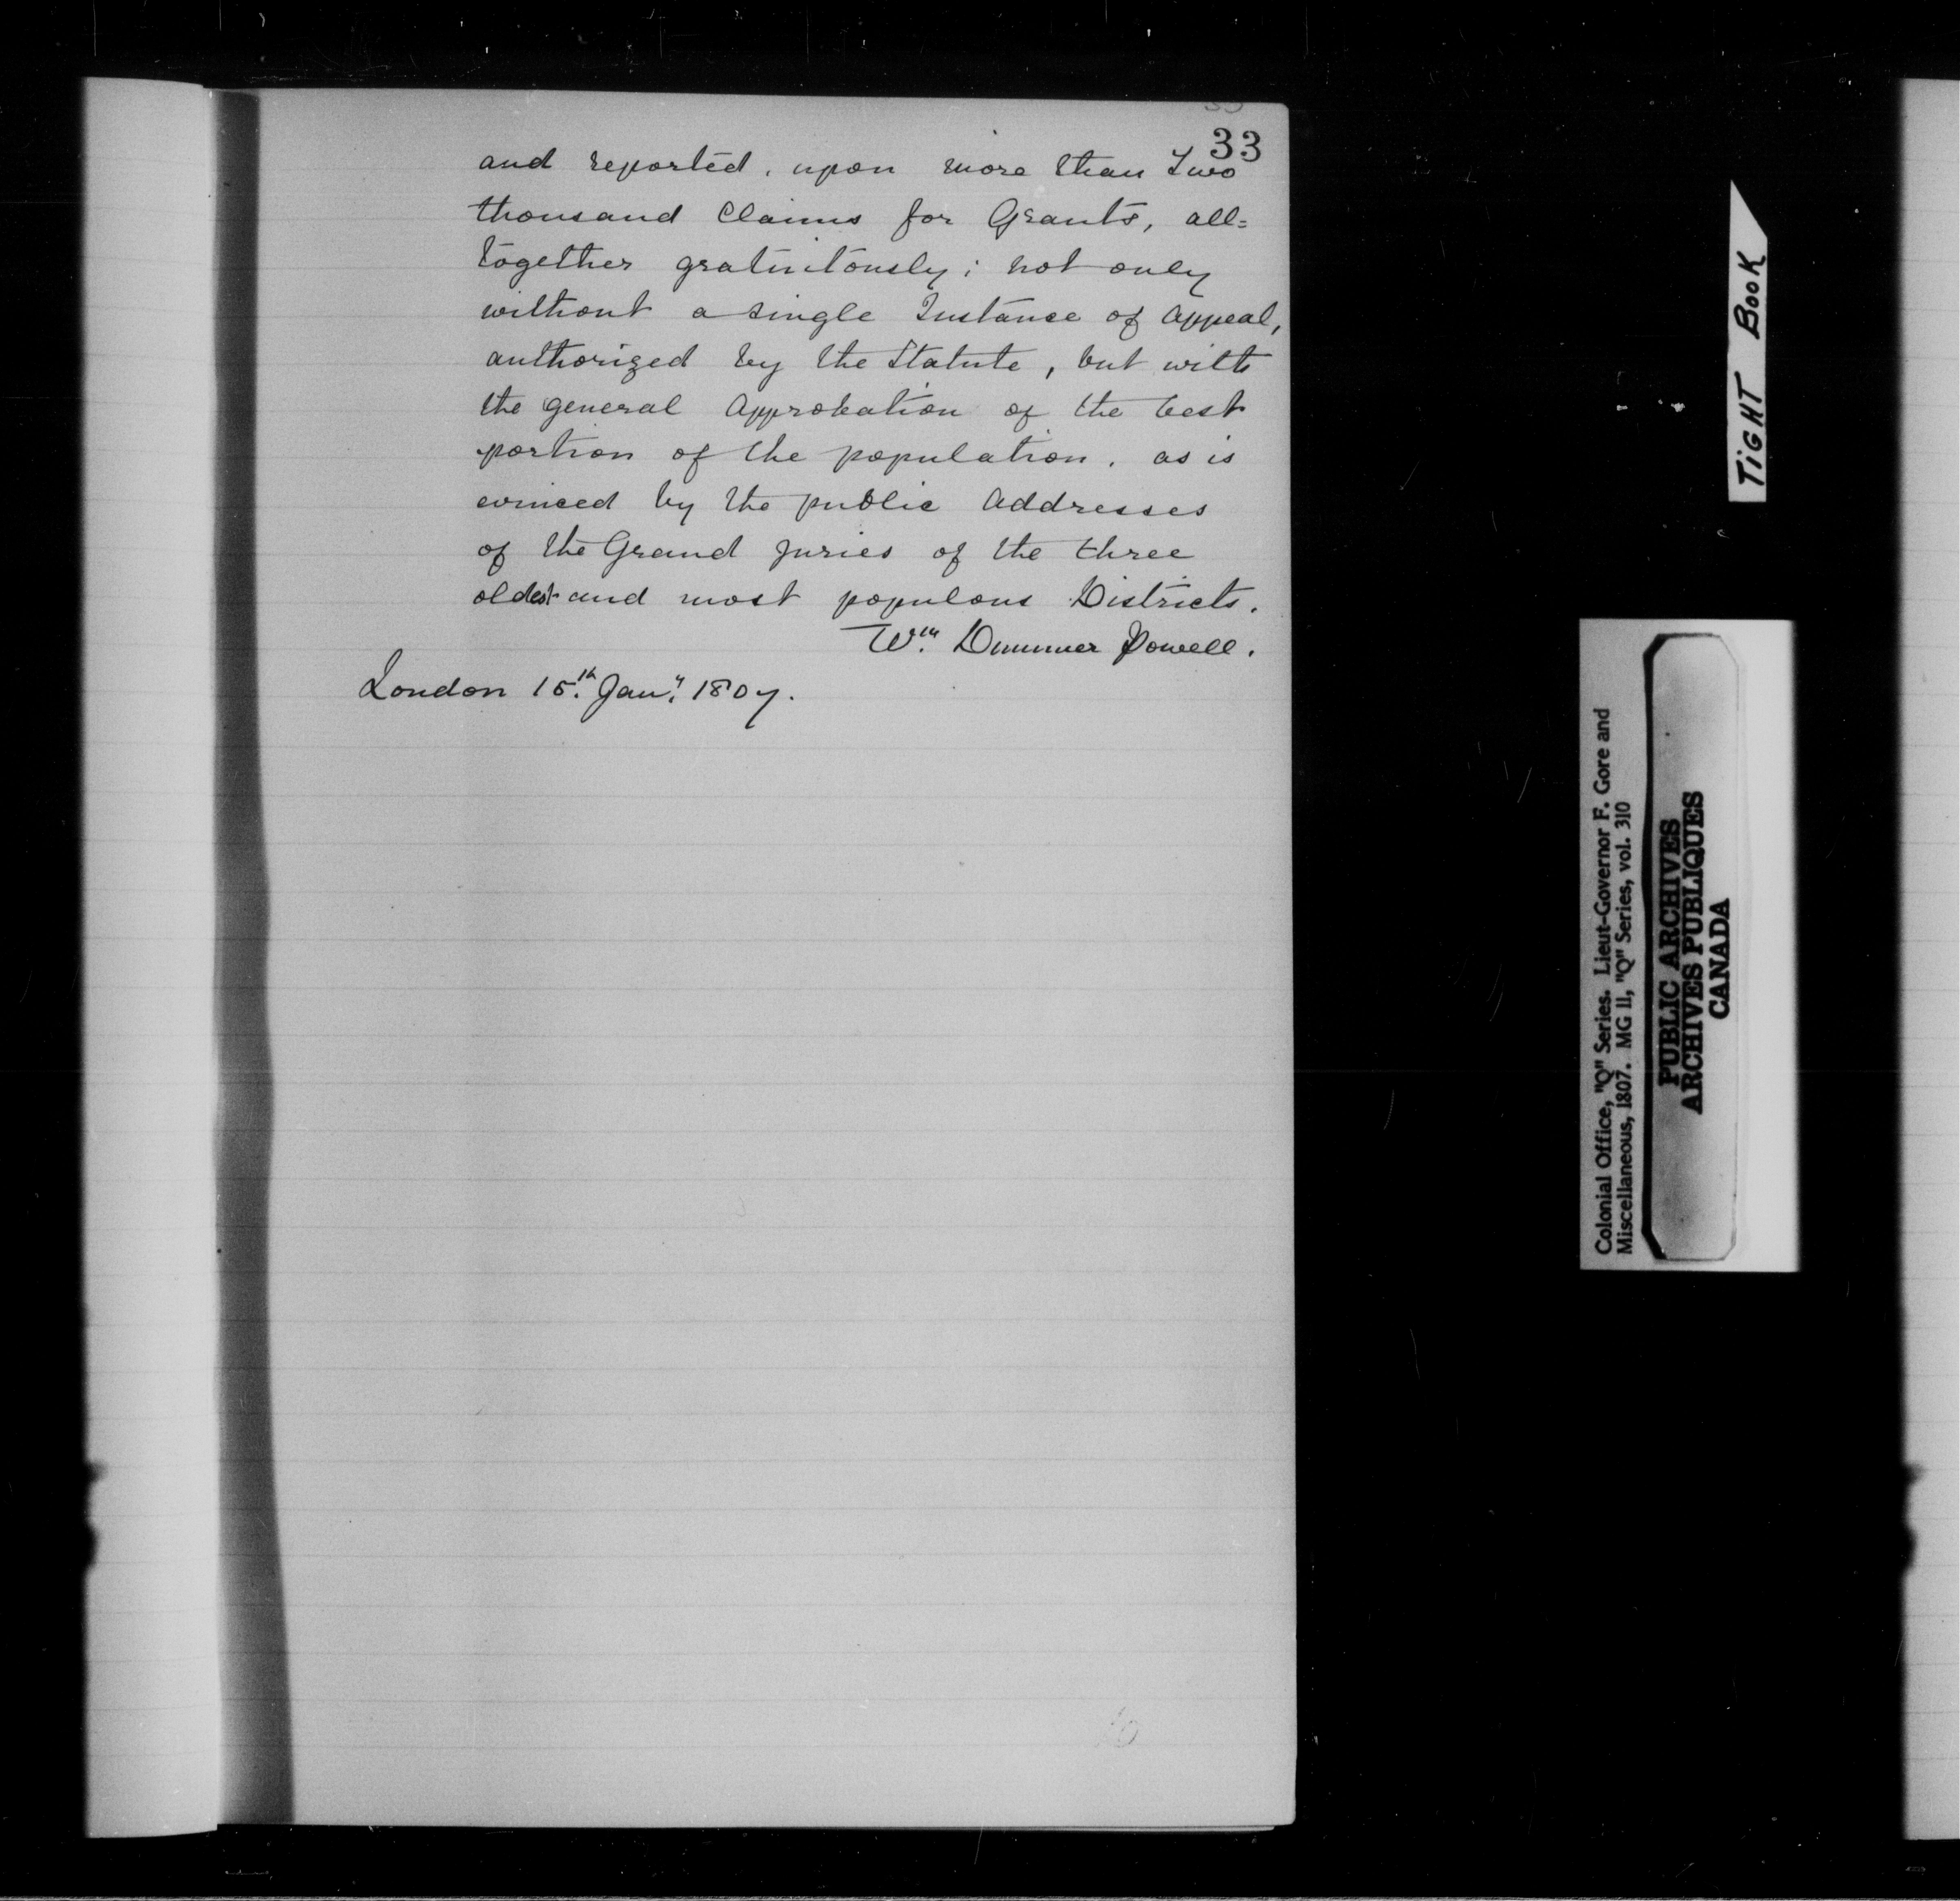 33
and reported, upon more than Two
thousand Claims for Grants, all=
together gratuitously; not only
without a single Instance of Appeal,
authorized by the Statute, but with
the general Approbation of the best
portion of the population, as is
evinced by the public Addresses
of the Grand Juries of the three
oldest and most populous Districts.
Wm. Dummer Powell.
London 15th. Jany. 1807.
TIGHT BOOK
Colonial Office, "Q" Series. Lieut-Governor F. Gore and
Miscellaneous, 1807. MG 11, "Q" Series, vol. 310
PUBLIC ARCHIVES
ARCHIVES PUBLIQUES
CANADA